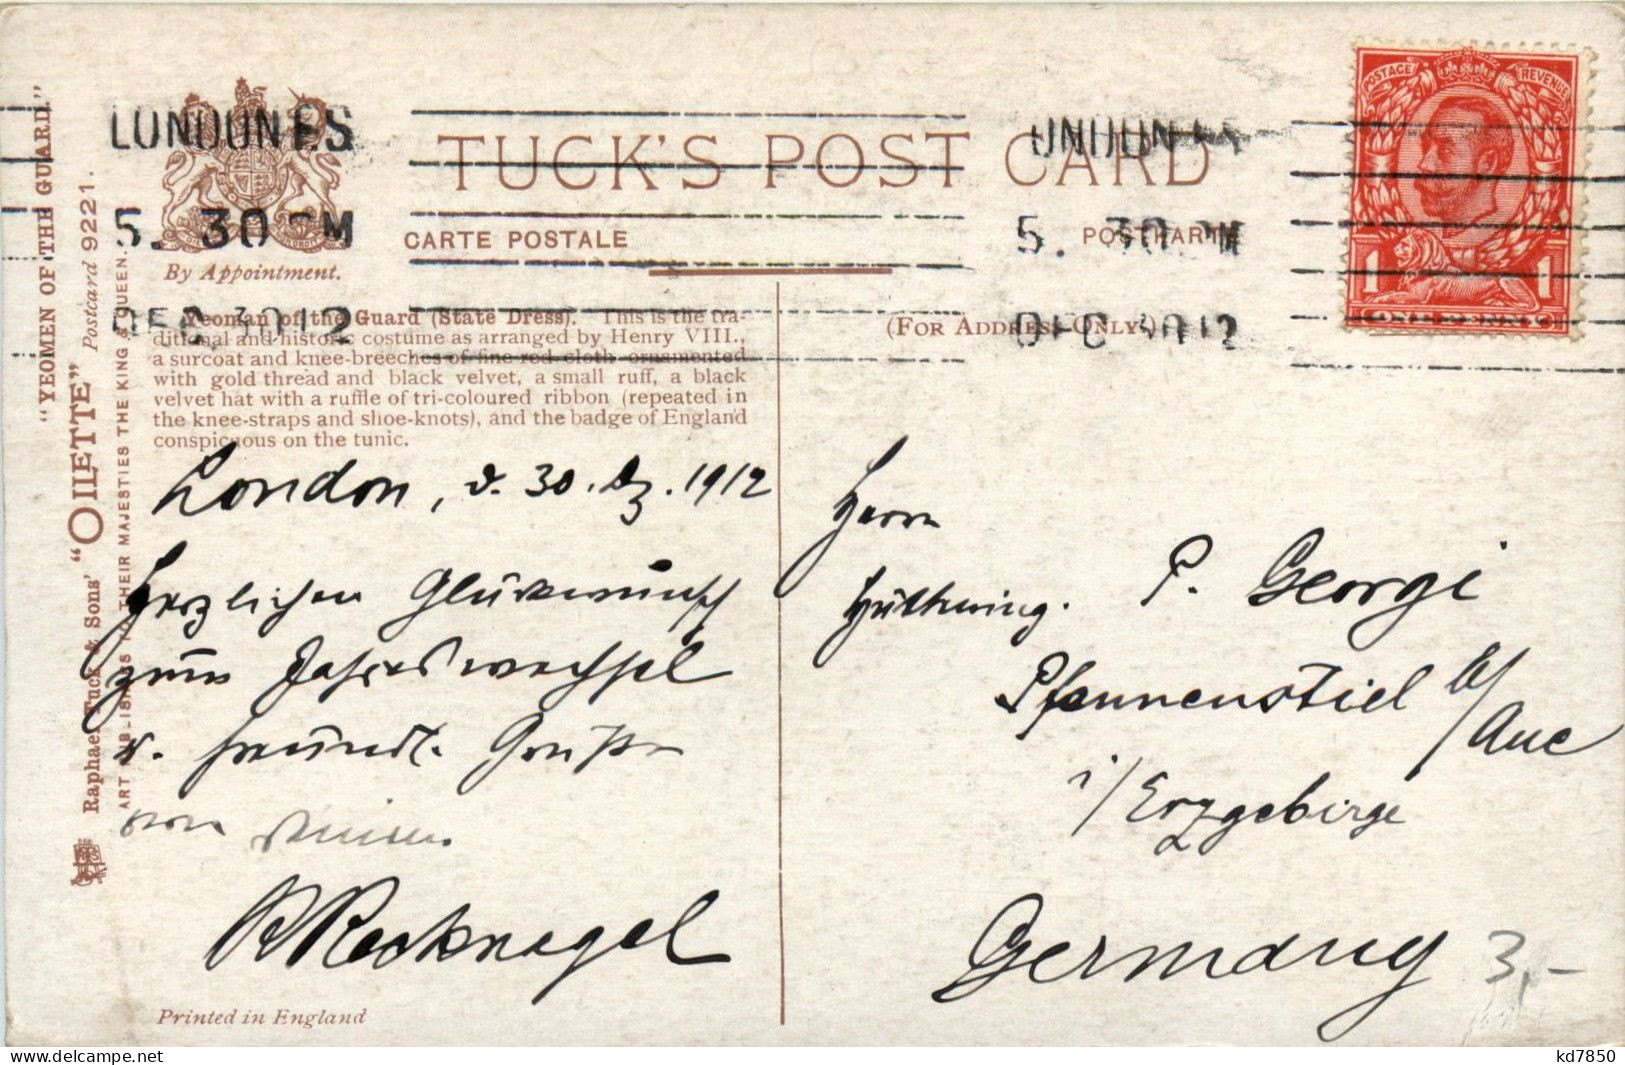 "YEOMEN OF THE GUARD."
Raphael Tuck & Sons' "OILETTE" Postcard 9221.
ART PUBLISHERS TO THEIR MAJESTIES THE KING & QUEEN.
LONDON E S
5. 30 PM
DEC 30 12
By Appointment.
TUCK'S POST CARD
CARTE POSTALE
POSTKARTE
(FOR ADDRESS ONLY.)
5. 30 PM
DEC 30 12
POSTAGE REVENUE
1 1
ONE PENNY
Yeoman of the Guard (State Dress). This is the tra-
ditional and historic costume as arranged by Henry VIII.,
a surcoat and knee-breeches of fine red cloth ornamented
with gold thread and black velvet, a small ruff, a black
velvet hat with a ruffle of tri-coloured ribbon (repeated in
the knee-straps and shoe-knots), and the badge of England
conspicuous on the tunic.
London, d. 30. Dz. 1912
Herzlichen Glückwunsch
zum Jahreswechsel
u. freundl. Grüße
von
R Recknagel
Printed in England
Herrn
P. Georgi
Pfannenstiel b/
Aue
i/Erzgebirge
Germany
3,-
kd7850
www.delcampe.net